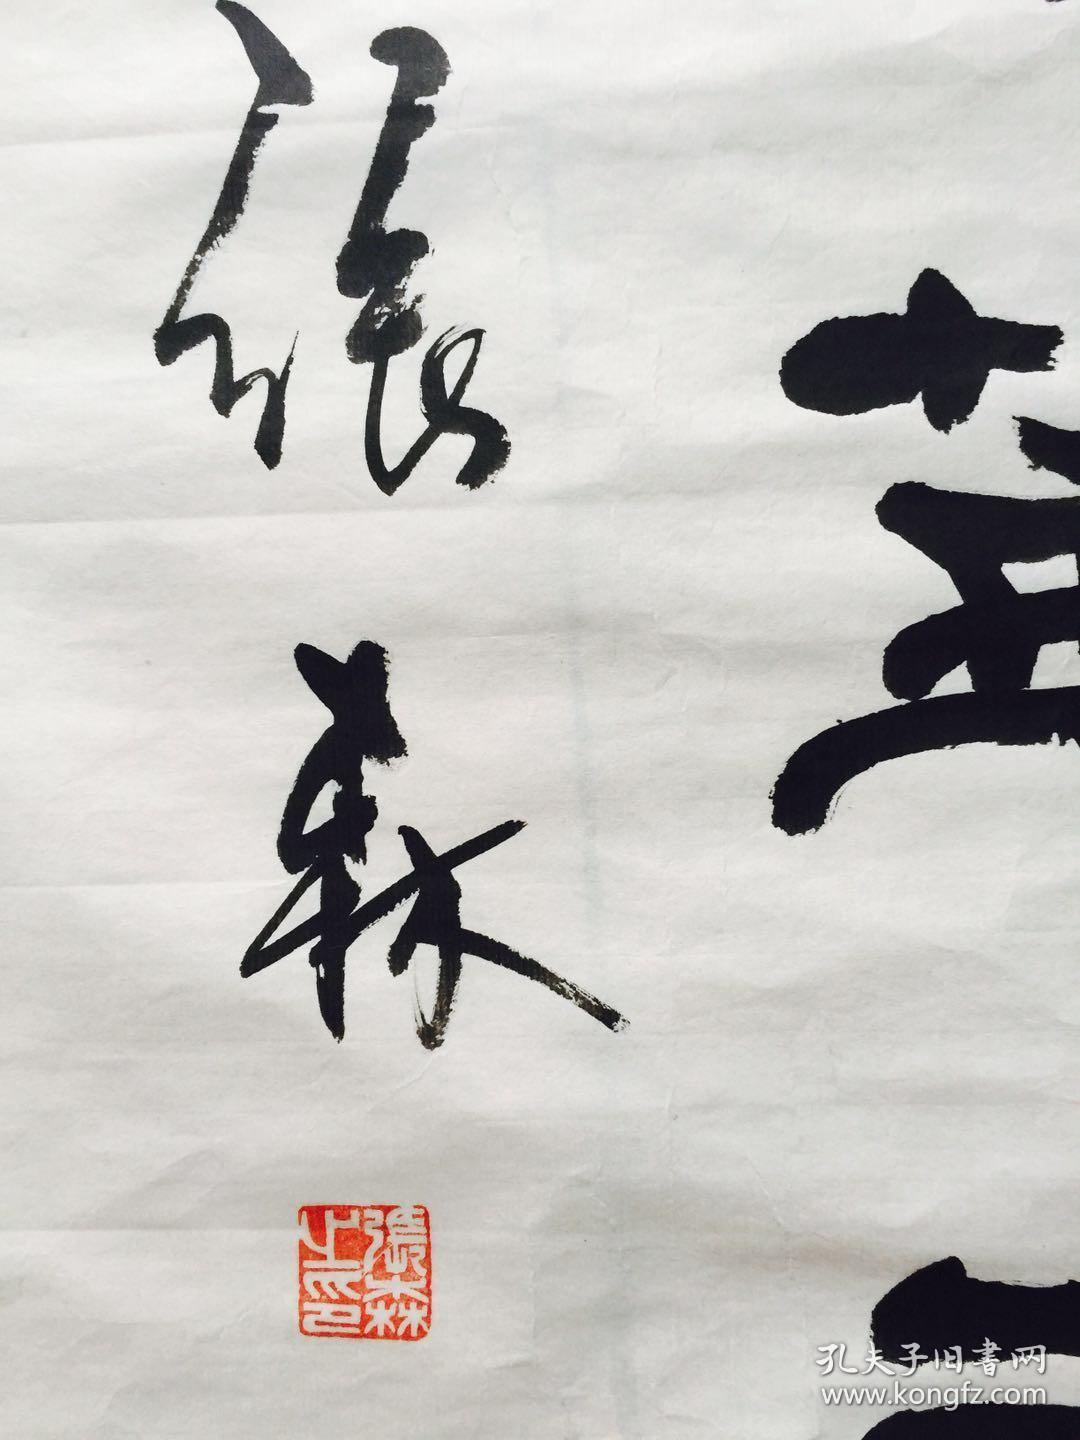 張森
張森之印
孔夫子旧書网
www.kongfz.com